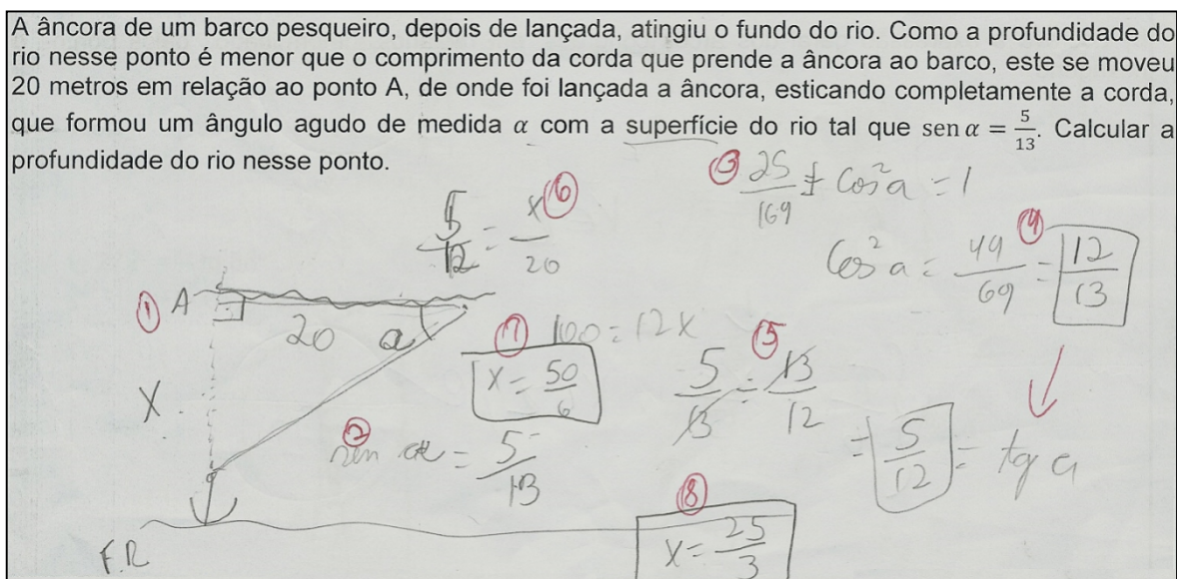 A âncora de um barco pesqueiro, depois de lançada, atingiu o fundo do rio. Como a profundidade do
rio nesse ponto é menor que o comprimento da corda que prende a âncora ao barco, este se moveu
20 metros em relação ao ponto A, de onde foi lançada a âncora, esticando completamente a corda,
que formou um ângulo agudo de medida α com a superfície do rio tal que sen α = 5/13. Calcular a
profundidade do rio nesse ponto.
③ 25/169 + Cos²a = 1
5/12 = x/20 ⑥
Cos²a = 49/69 = 12/13 ④
① A
20 a
⑦ 100 = 12x
x = 50/6
5/13 = 13/12 ⑤
= 5/12 = tg a
X
② sen α = 5/13
⑧
x = 25/3
F.R